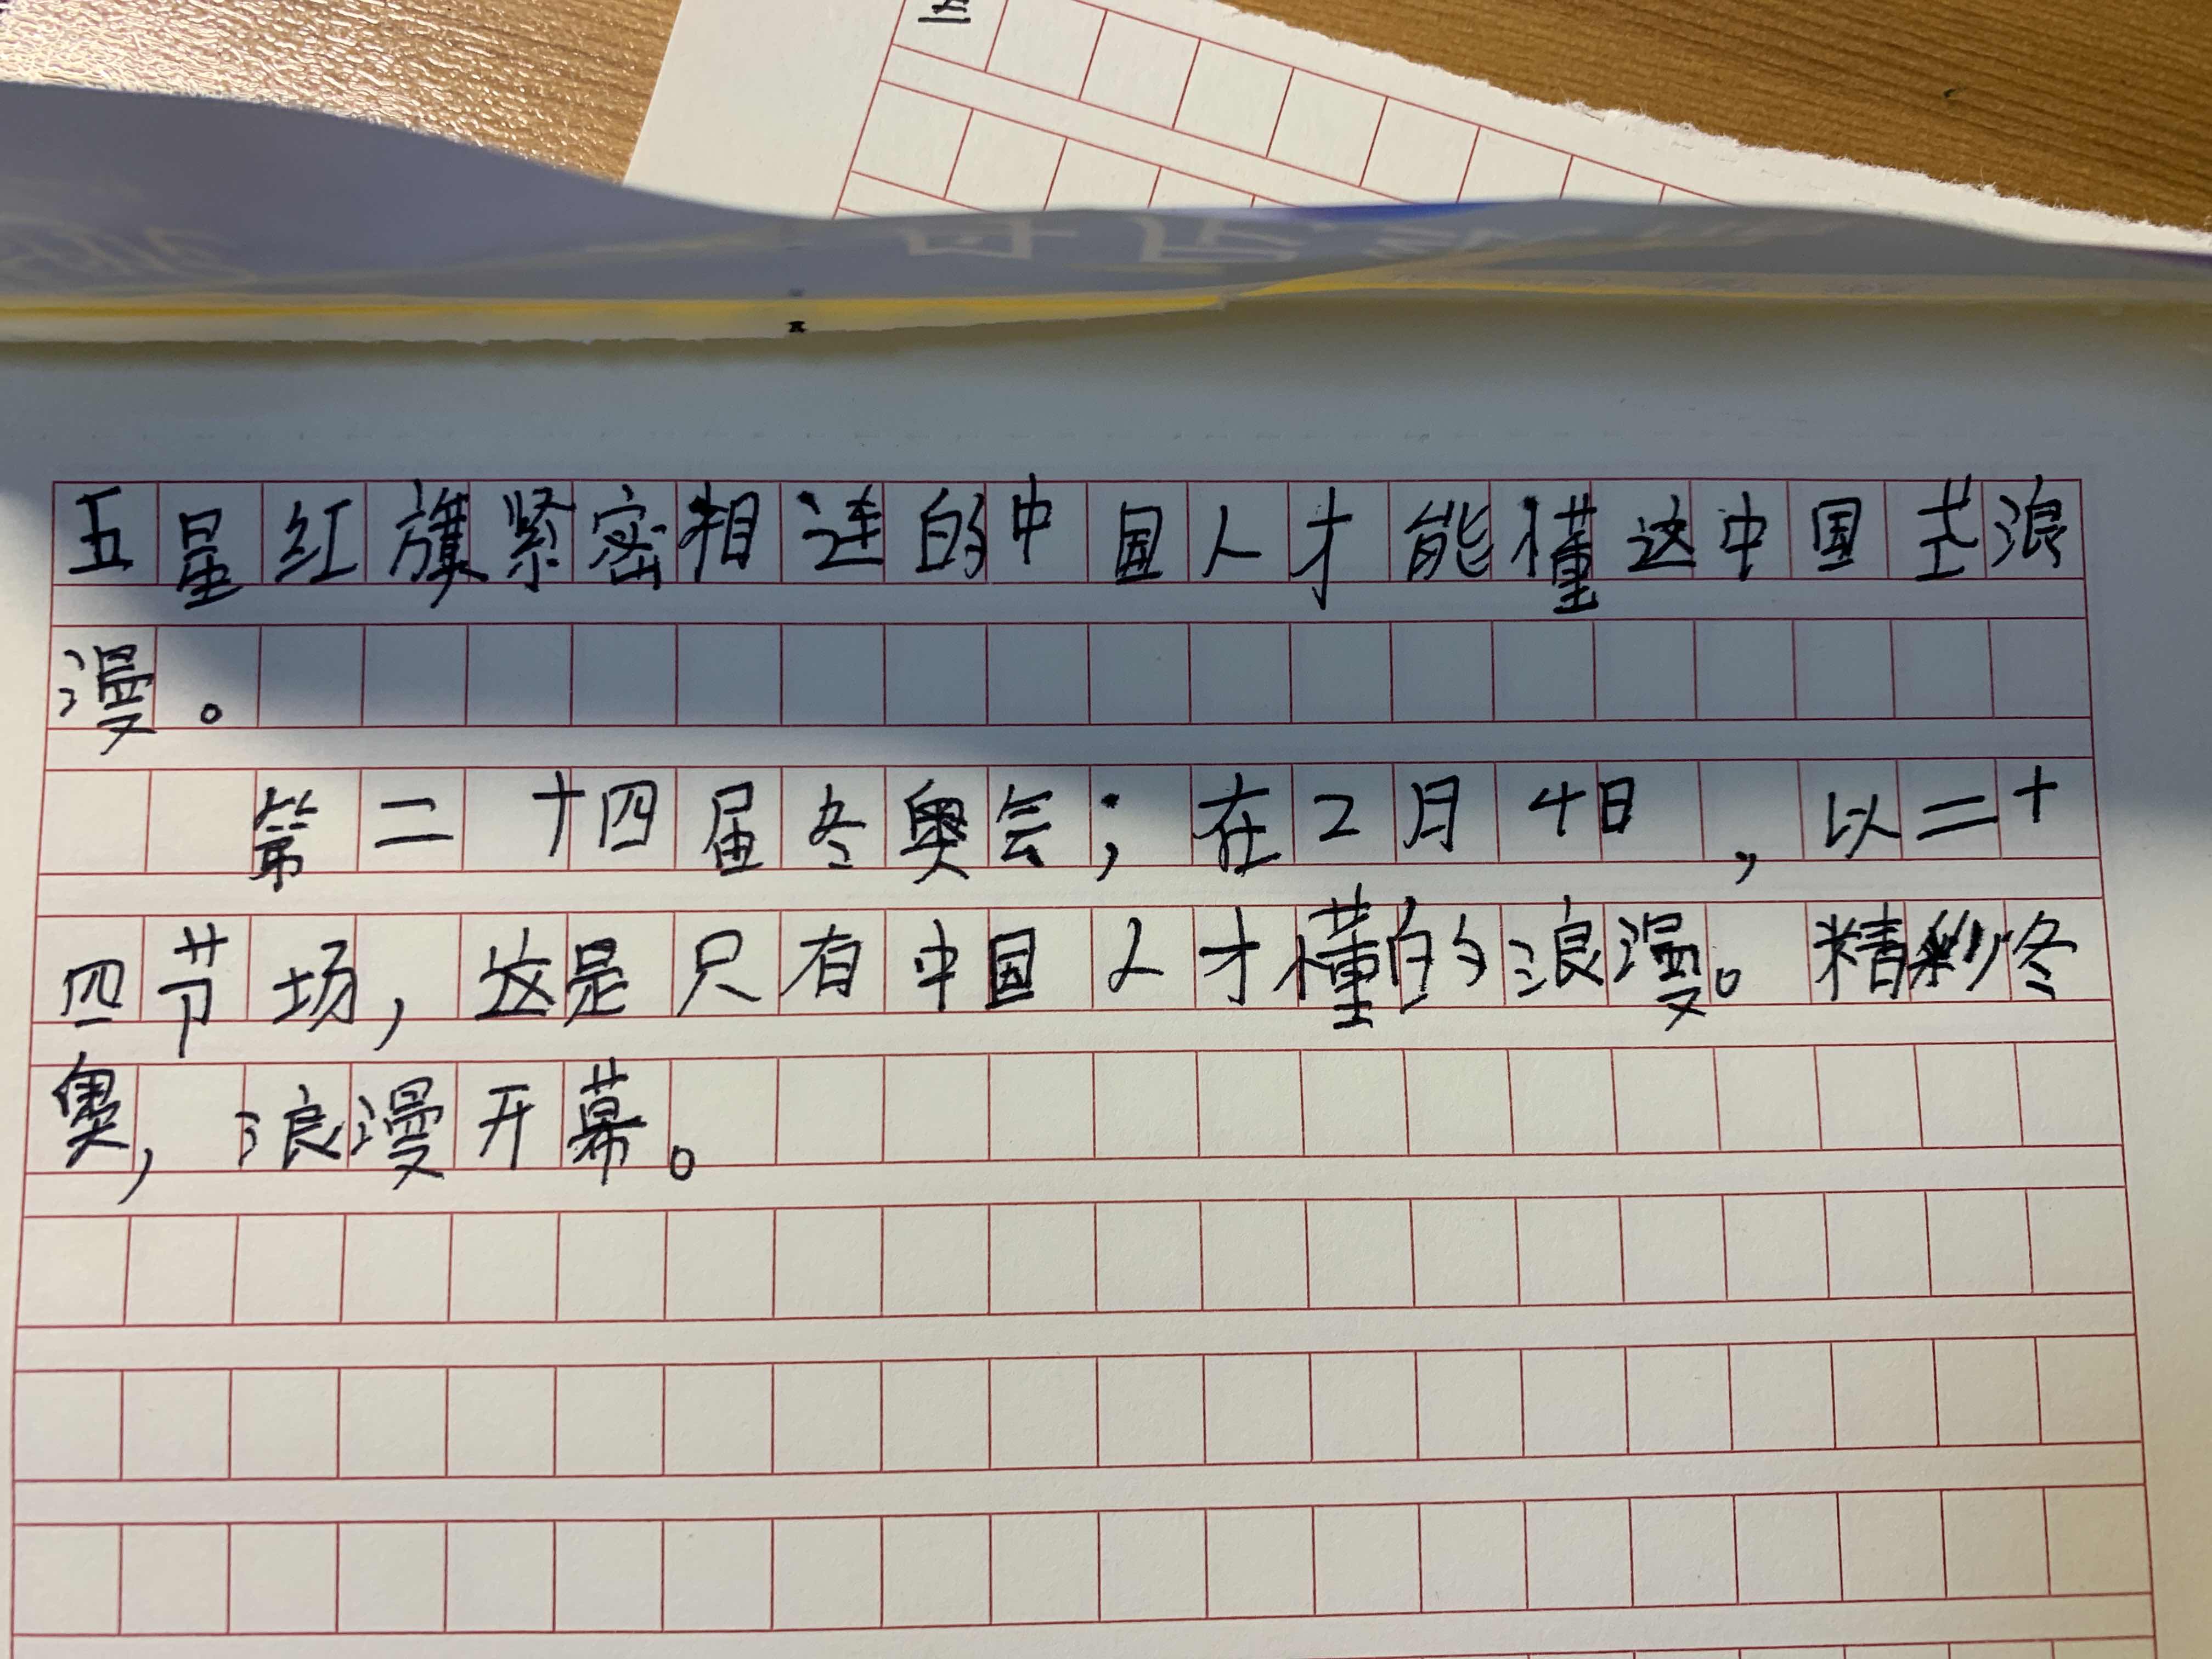 五星红旗紧密相连的中国人才能懂这中国式浪
漫。
第二十四届冬奥会；在2月4日，以二十
四节场，这是只有中国人才懂的浪漫。精彩冬
奥，浪漫开幕。